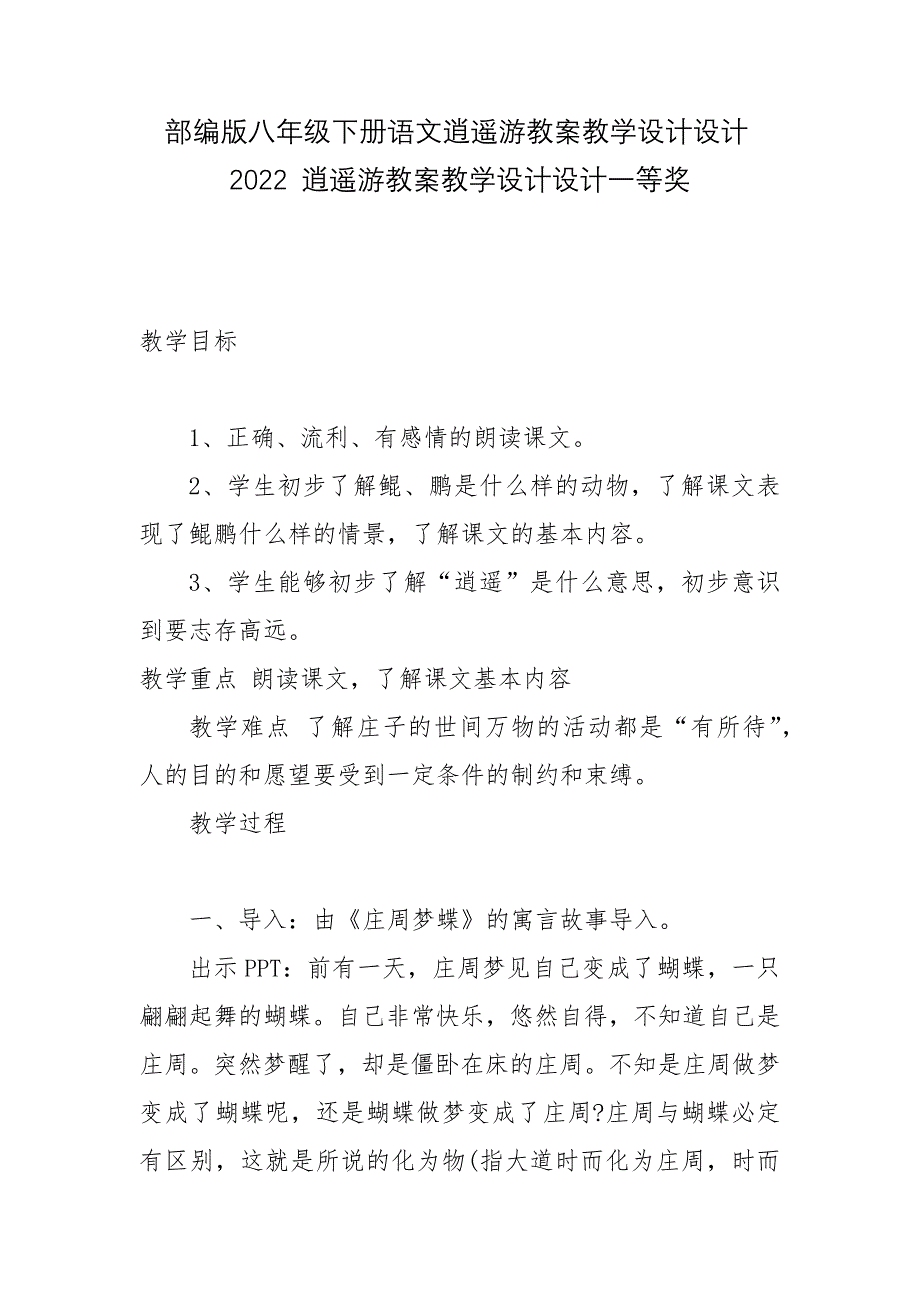 部编版八年级下册语文逍遥游教案教学设计设计
2022 逍遥游教案教学设计设计一等奖
教学目标
1、正确、流利、有感情的朗读课文。
2、学生初步了解鲲、鹏是什么样的动物，了解课文表
现了鲲鹏什么样的情景，了解课文的基本内容。
3、学生能够初步了解“逍遥”是什么意思，初步意识
到要志存高远。
教学重点 朗读课文，了解课文基本内容
教学难点 了解庄子的世间万物的活动都是“有所待”，
人的目的和愿望要受到一定条件的制约和束缚。
教学过程
一、导入：由《庄周梦蝶》的寓言故事导入。
出示PPT：前有一天，庄周梦见自己变成了蝴蝶，一只
翩翩起舞的蝴蝶。自己非常快乐，悠然自得，不知道自己是
庄周。突然梦醒了，却是僵卧在床的庄周。不知是庄周做梦
变成了蝴蝶呢，还是蝴蝶做梦变成了庄周?庄周与蝴蝶必定
有区别，这就是所说的化为物(指大道时而化为庄周，时而